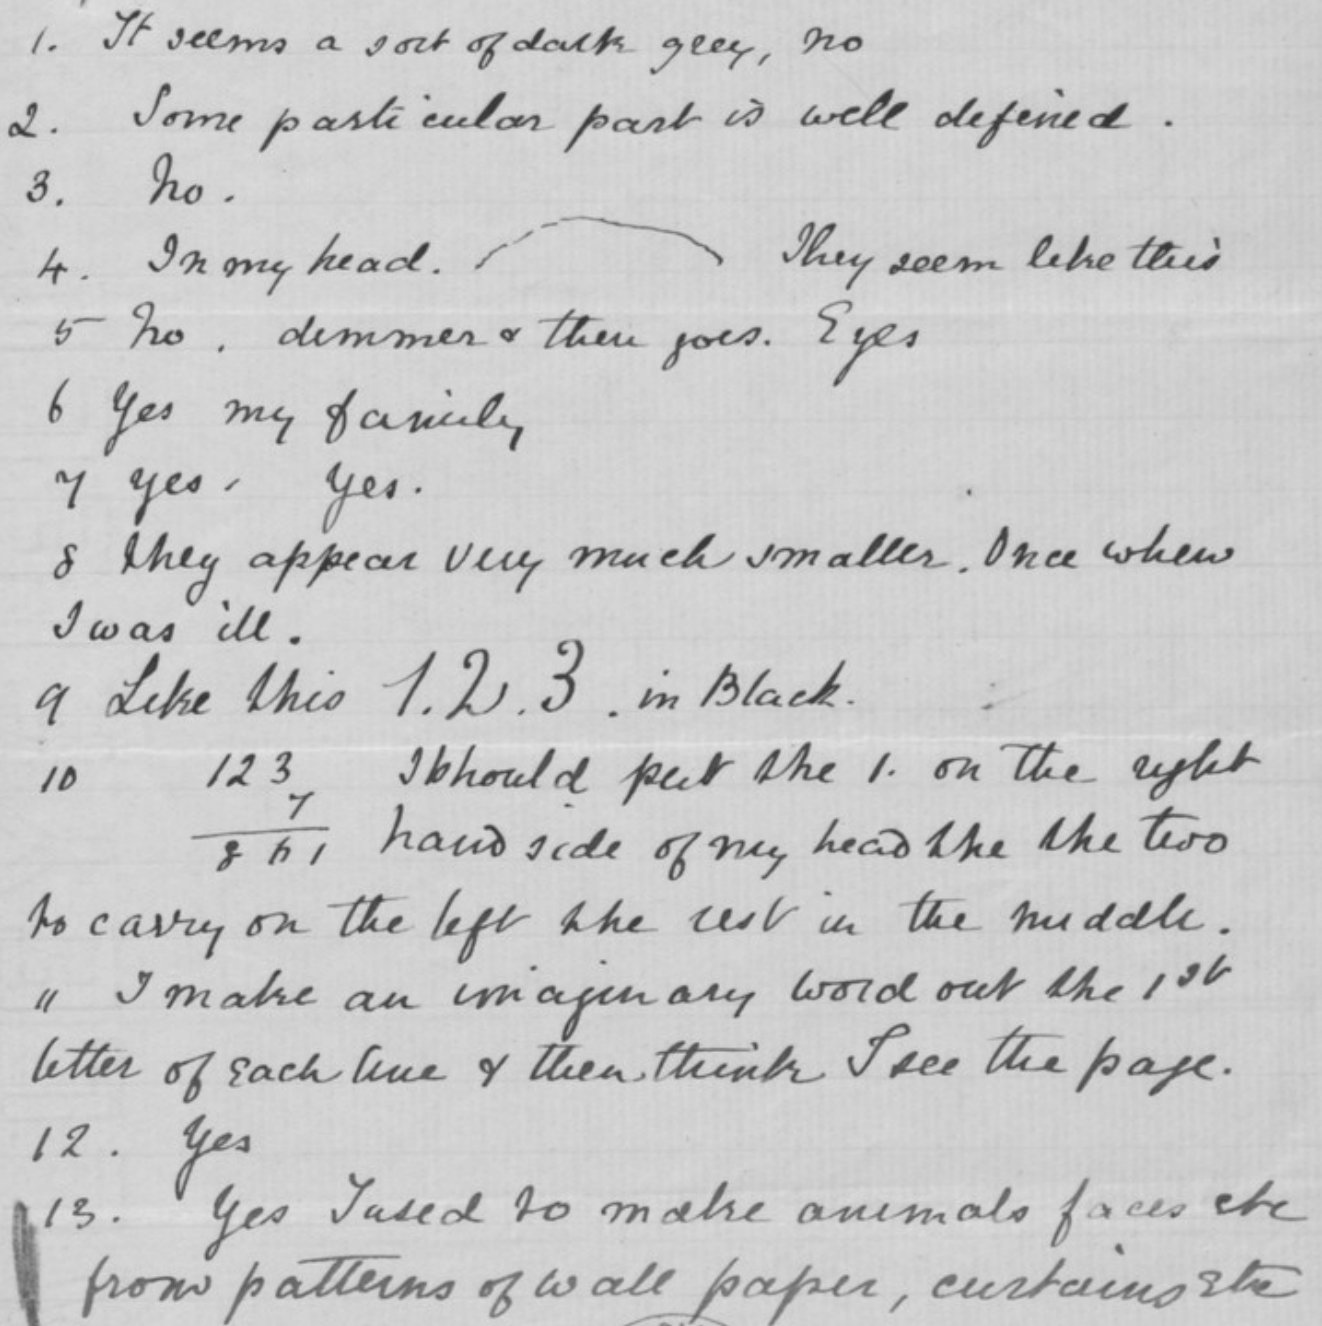 1. It seems a sort of dark grey, no
2. Some particular part is well defined.
3. No.
4. In my head. They seem like this
5 No. dimmer & then goes. Eyes
6 Yes my family
7 yes, Yes.
8 they appear very much smaller. Once when
I was ill.
9 Like this 1.2.3. in Black.
10 123 I should put the 1. on the right
7
861 hand side of my head the the two
to carry on the left the rest in the middle.
11 I make an imaginary word out the 1st
letter of each line & then think I see the page.
12. Yes
13. Yes I used to make animals faces etc
from patterns of wall paper, curtains etc